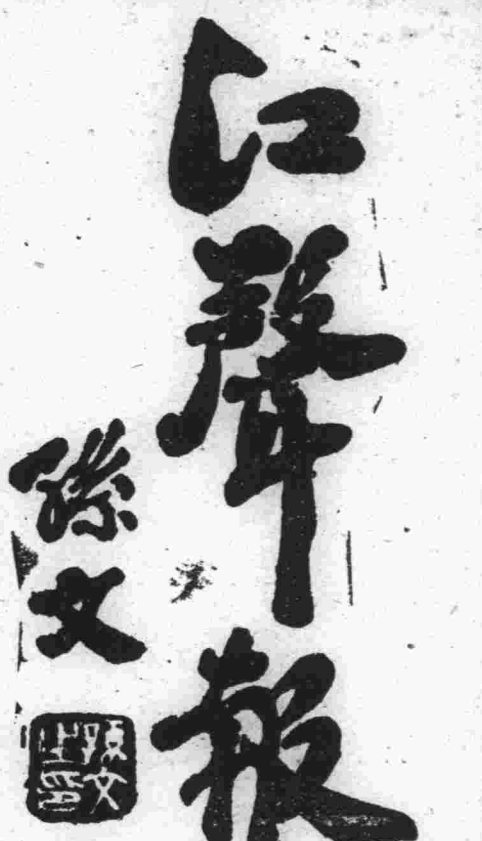 江聲報
孫文
孫文之印